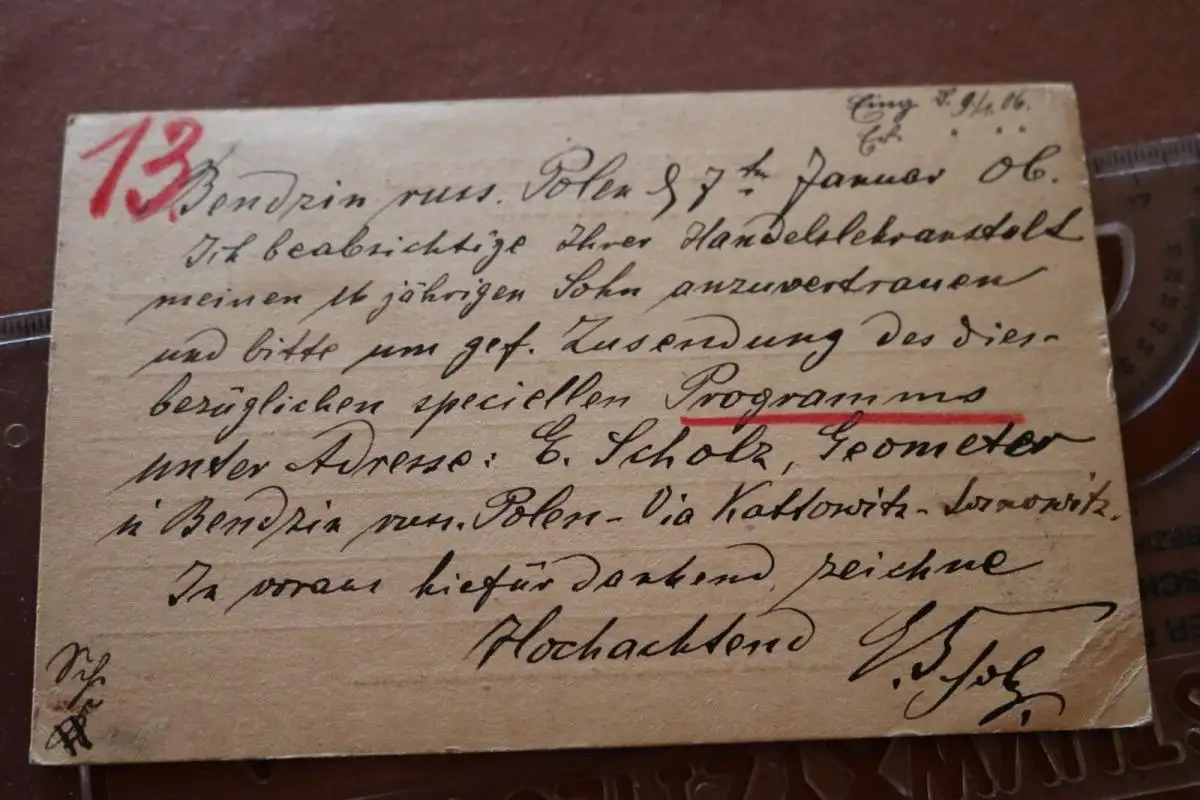 Eing d. 9/1. 06.
13.
Bendzin russ. Polen d 7ten Januar 06.
Ich beabsichtige Ihrer Handelslehranstalt
meinen 16 jährigen Sohn anzuvertrauen
und bitte um gef. Zusendung des dies-
bezüglichen speciellen Programms
unter Adresse: E. Scholz, Geometer
in Bendzin russ. Polen - Via Kattowitz - Sosnowitz.
In voraus hiefür dankend, zeichne
Hochachtend
E. Scholz
Sch.